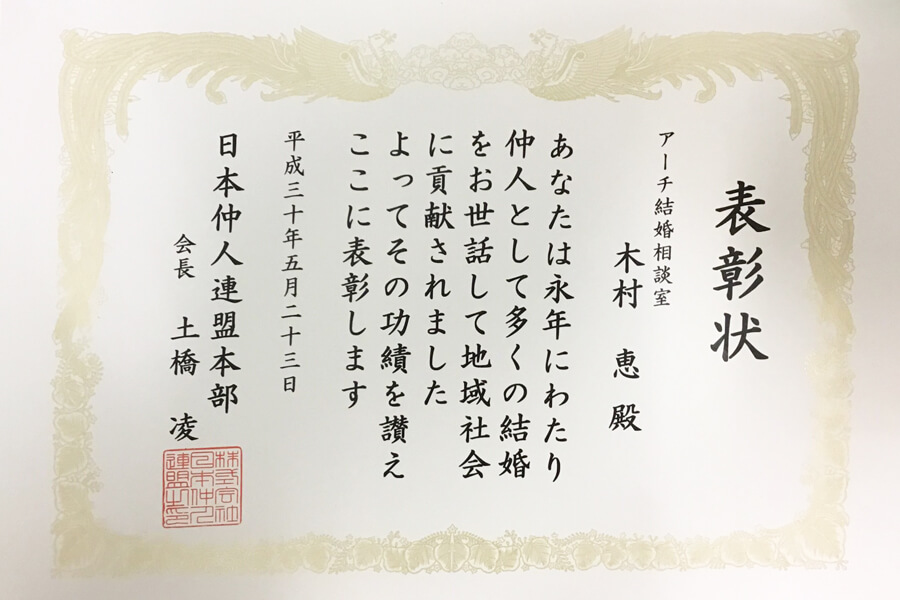 表彰状
アーチ結婚相談室
木村 恵 殿
あなたは永年にわたり
仲人として多くの結婚
をお世話して地域社会
に貢献されました
よってその功績を讃え
ここに表彰します
平成三十年五月二十三日
日本仲人連盟本部
会長 土橋 凌
株式会社
日本仲人
連盟之印